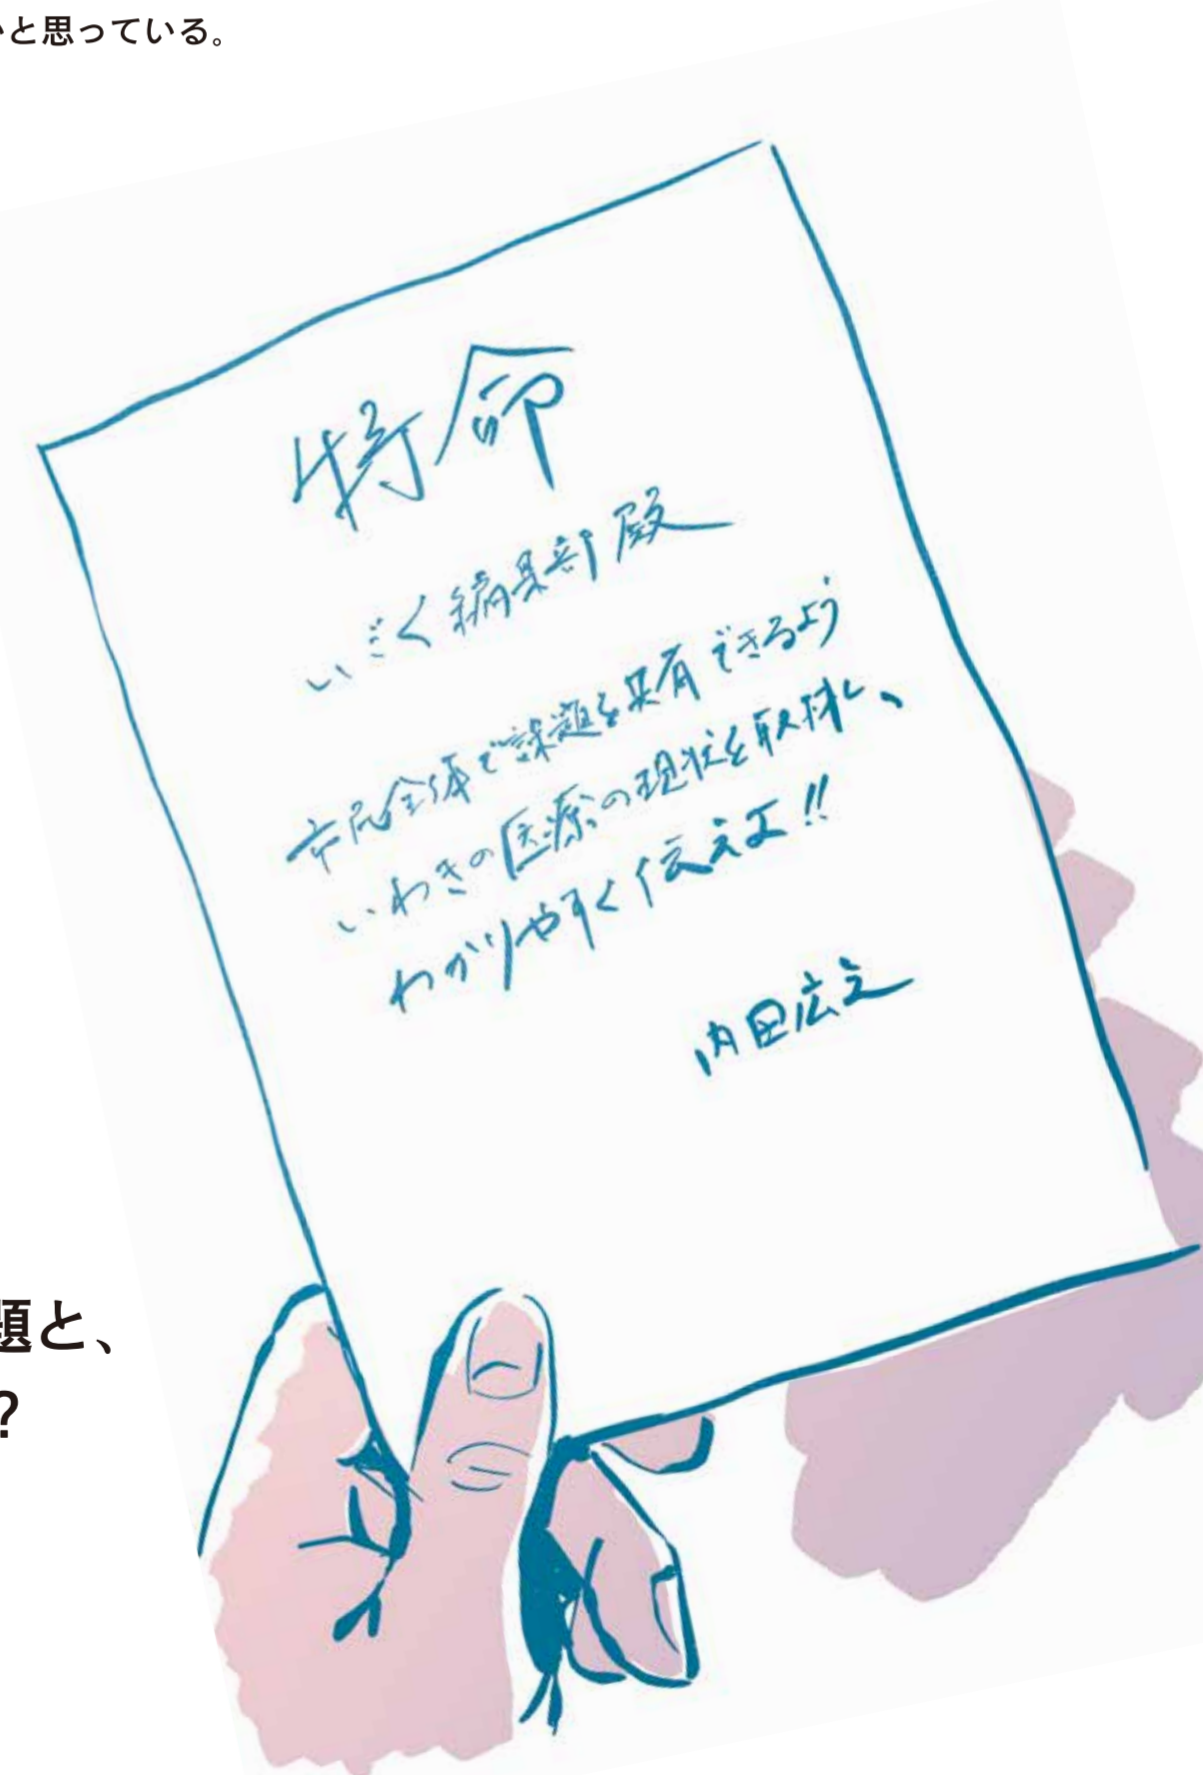 いと思っている。
特命
いごく編集部殿
市民全体で課題を共有できるよう
いわきの医療の現状を取材し、
わかりやすく伝えよ!!
内田広之
題と、
?